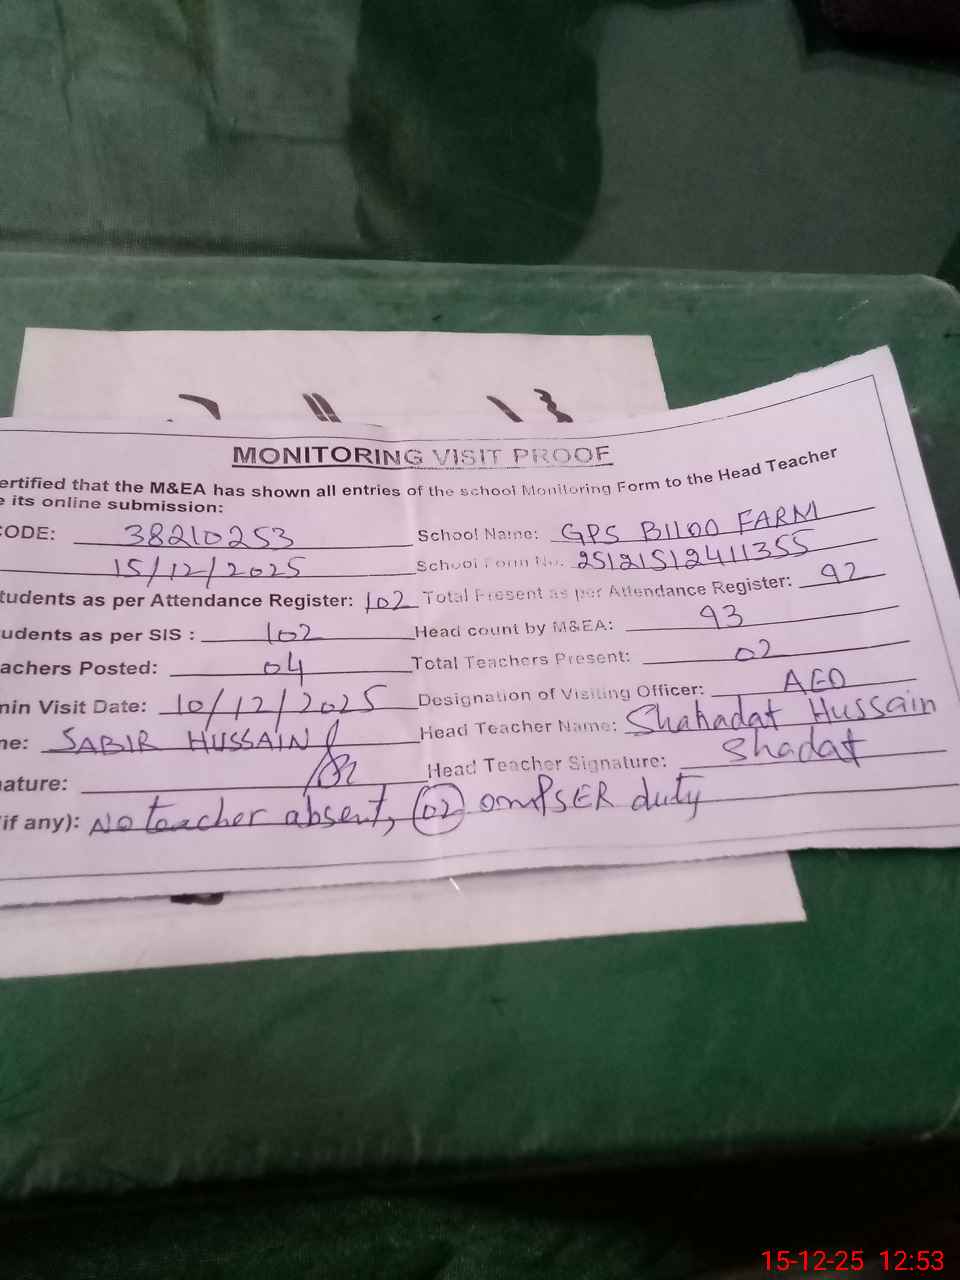 MONITORING VISIT PROOF
ertified that the M&EA has shown all entries of the school Monitoring Form to the Head Teacher
e its online submission:
CODE: 38210253 School Name: GPS BILOO FARM
15/12/2025 School Form No. 25121512411355
tudents as per Attendance Register: 102 Total Present as per Attendance Register: 92
udents as per SIS : 102 Head count by M&EA: 93
achers Posted: 04 Total Teachers Present: 02
min Visit Date: 10/12/2025 Designation of Visiting Officer: AEO
ne: SABIR HUSSAIN Head Teacher Name: Shahadat Hussain
ature: Head Teacher Signature: Shadat
if any): No teacher absent, 02 on PSER duty
15-12-25 12:53